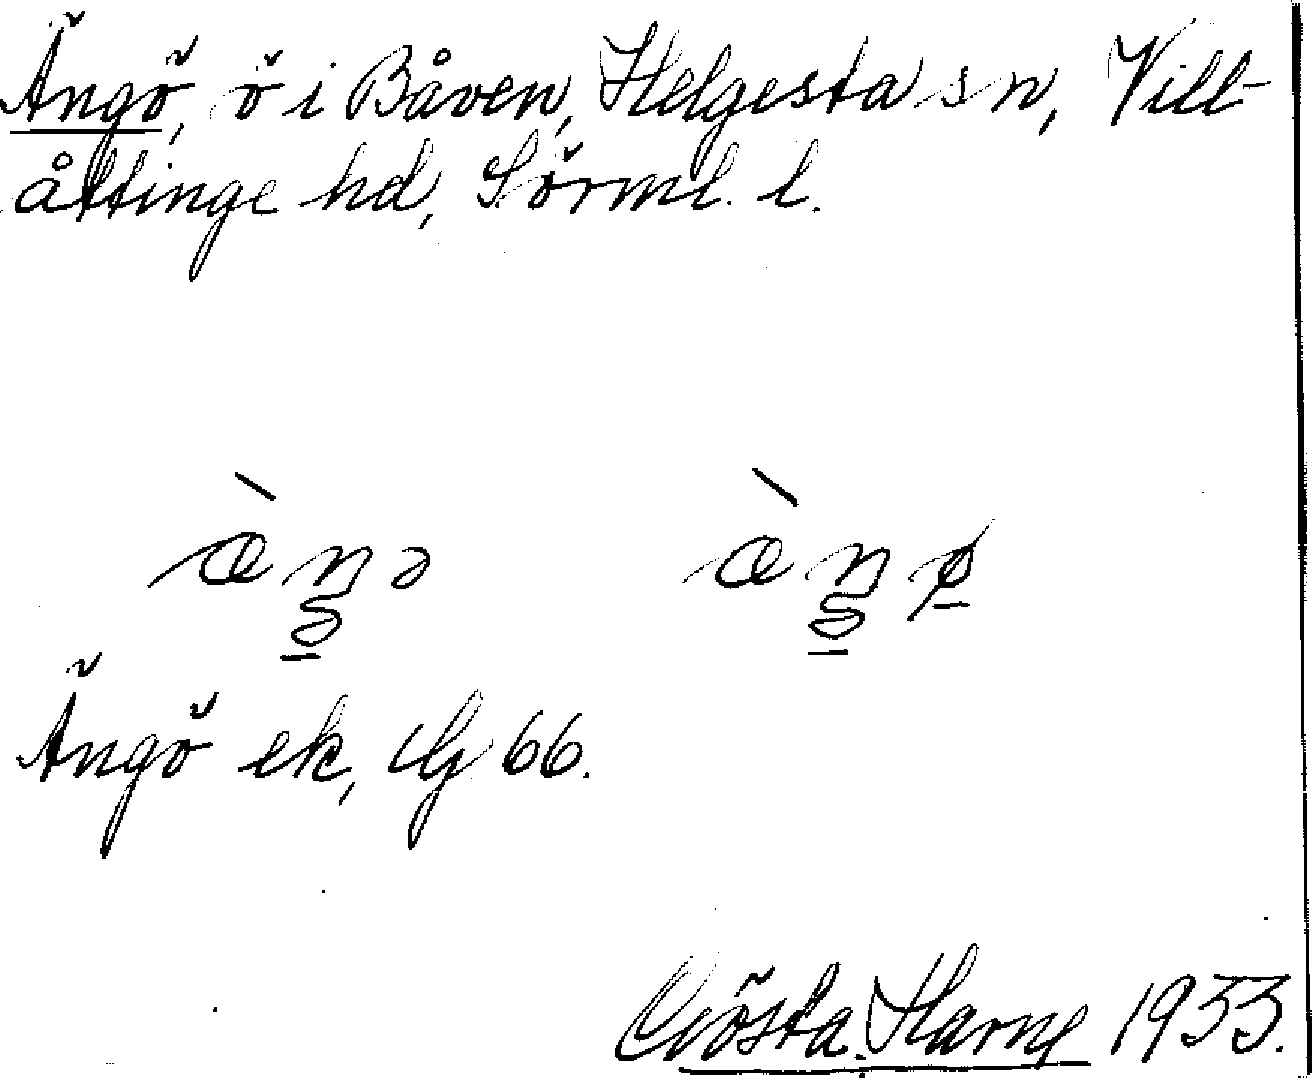 Ängö, ö i Båven, Helgesta sn, Vill-
åttinge hd, Sörml. l.
Ängö ek, G 66.
Gösta Harne 1933.